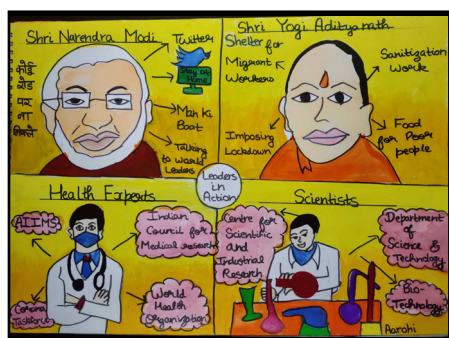 Shri Narendra Modi
Twitter
Stay at
Home
कोई
रोड
पर
ना
निकले
Man Ki
Baat
Talking
to world
leaders
Shri Yogi Adityanath
Shelter for
Migrant
Workers
Sanitization
Work
Imposing
Lockdown
Food
for Poor
people
Leaders
in
Action
Health Experts
AIIMS
Indian
Council for
Medical research
Corona
Taskforce
World
Health
Organization
Scientists
Centre for
Scientific
and
Industrial
Research
Department
of
Science &
Technology
Bio-
Technology
Aarohi